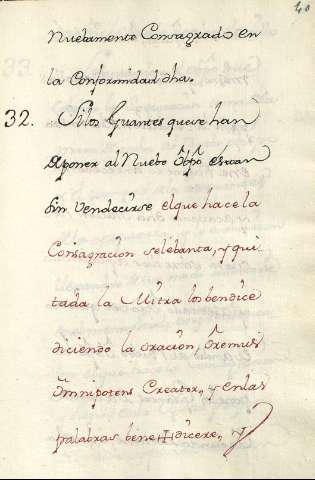 40
Nuebamente Consagrado en
la Conformidad dha.
32. Si los Guantes que se han
de poner al Nuebo Obpõ estan
sin vendecirse el que hace la
Consagracion se lebanta, y qui
tada la Mitra los bendice
diciendo la oracion, Oremus
Omnipotens Creator, y en las
palabras bene✠dicere, y